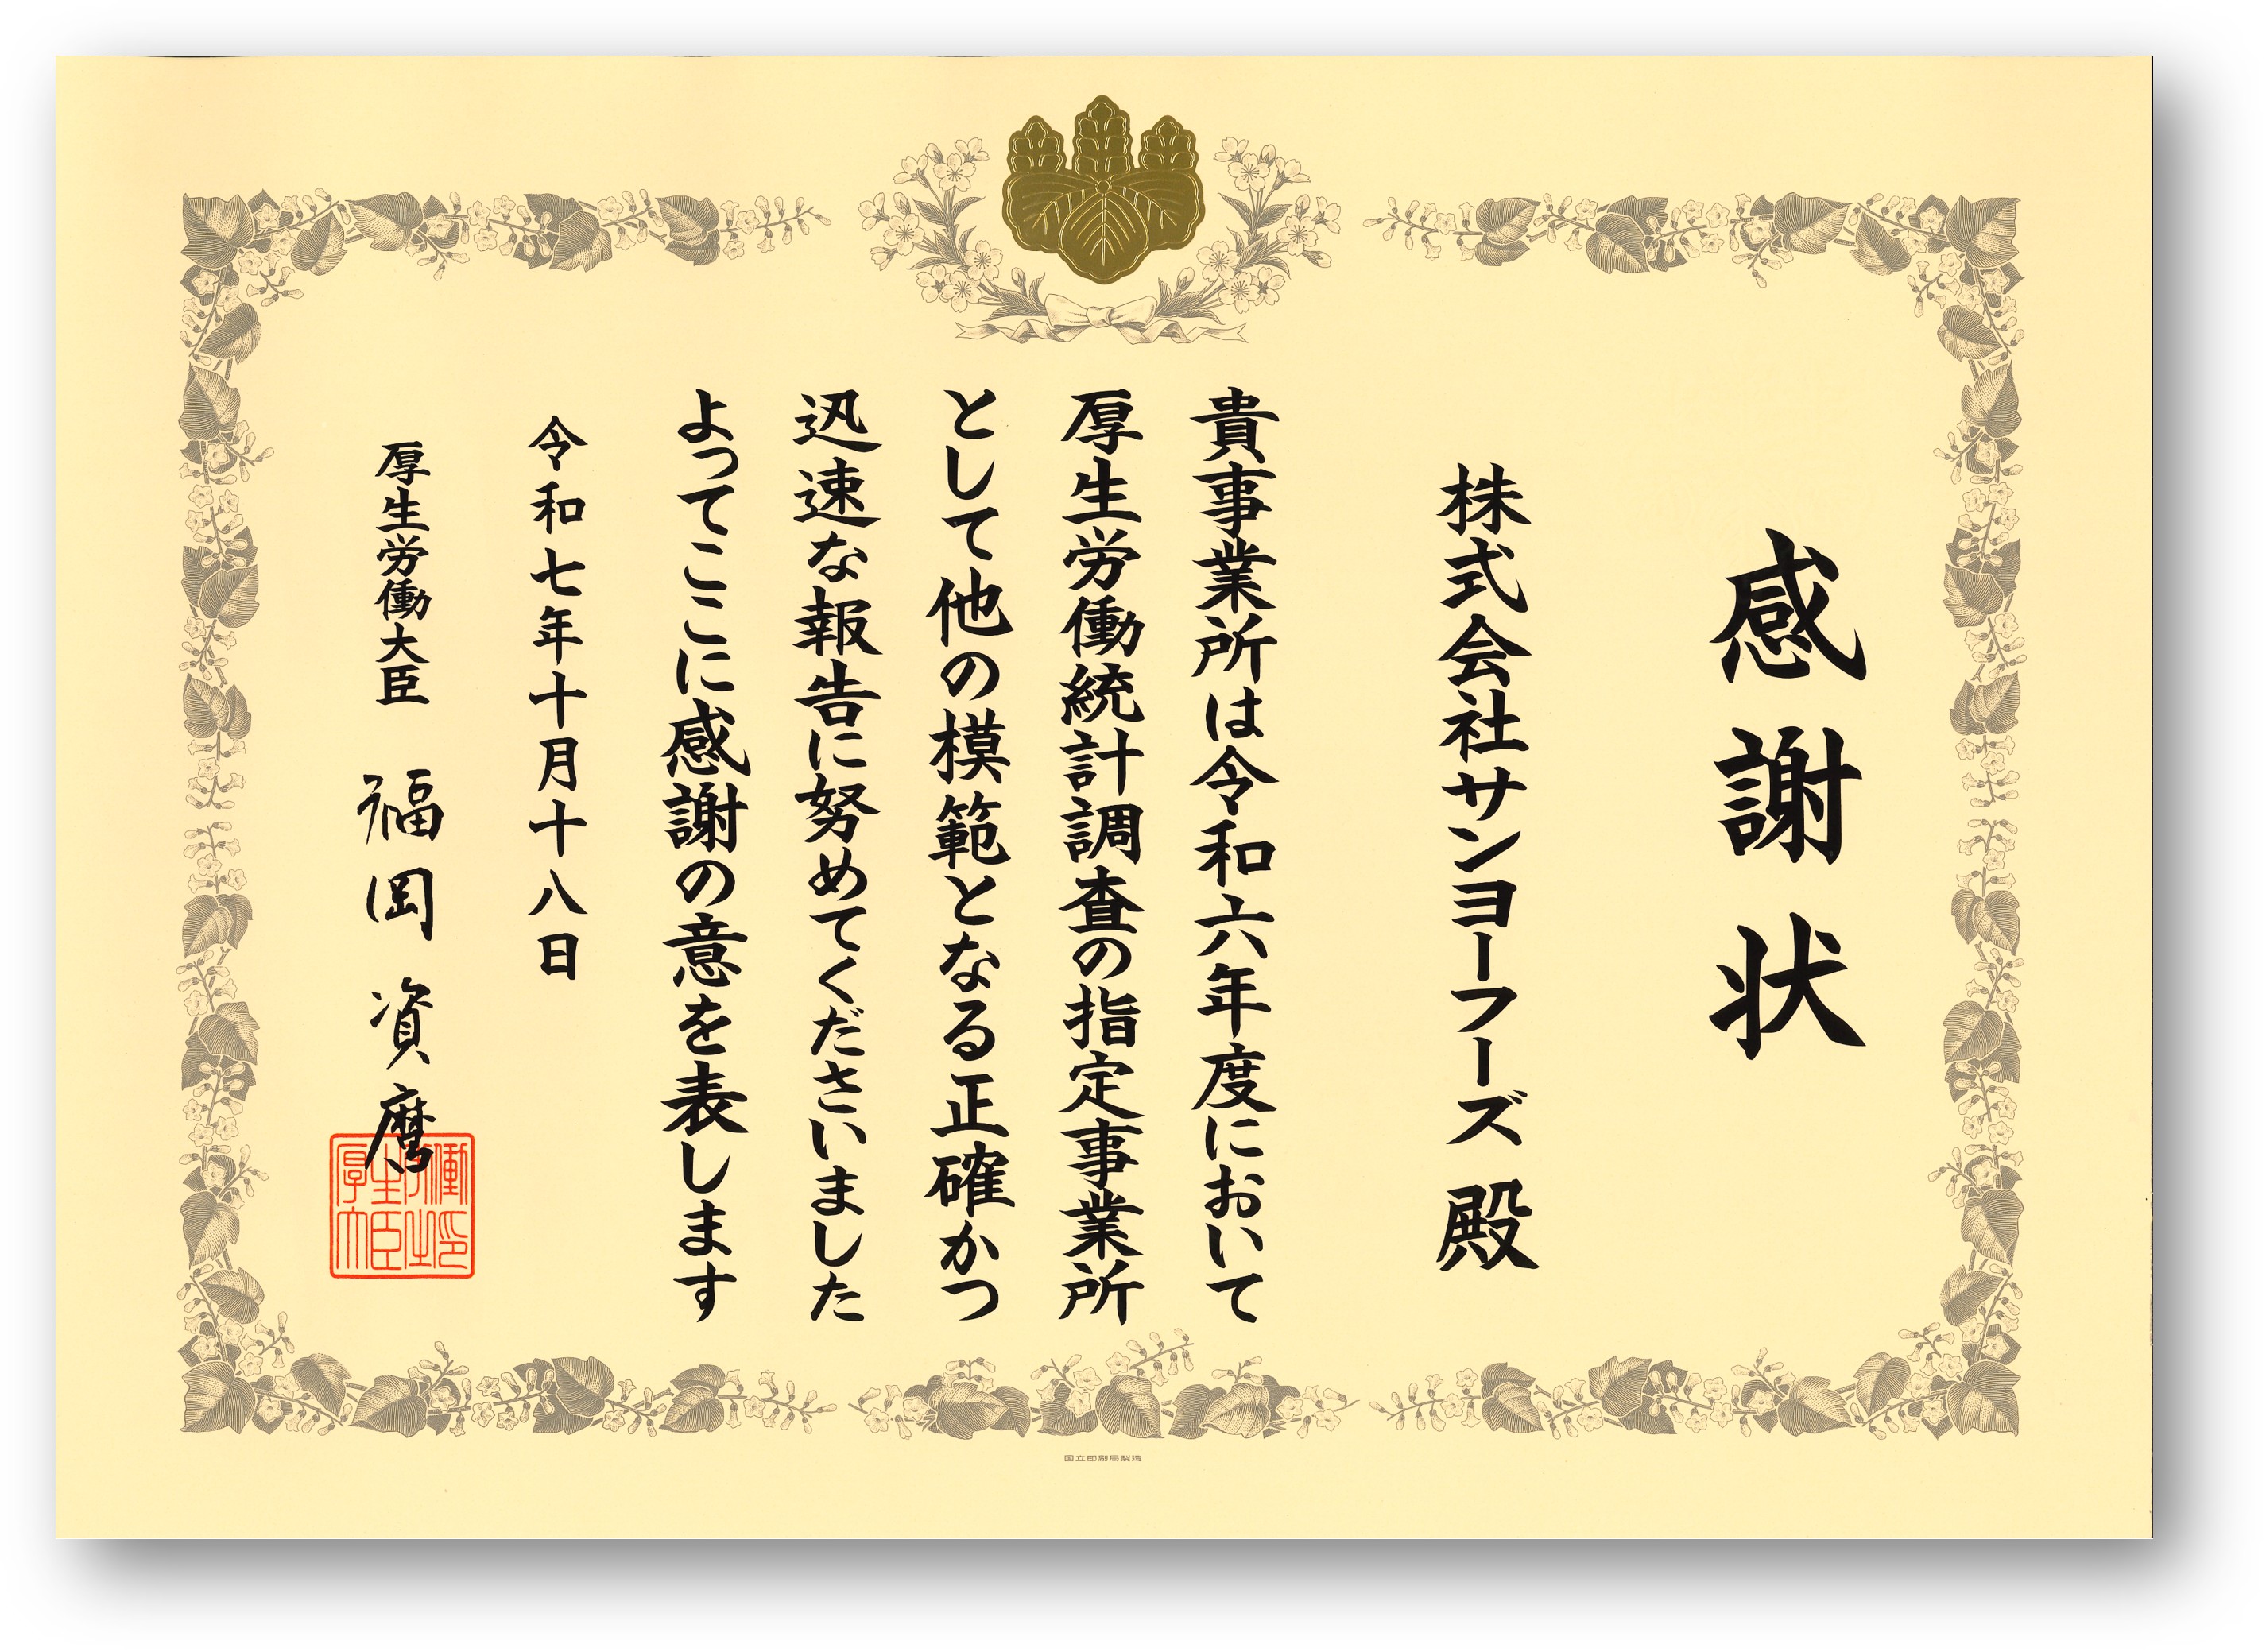 感謝状
株式会社サンヨーフーズ 殿
貴事業所は令和六年度において
厚生労働統計調査の指定事業所
として他の模範となる正確かつ
迅速な報告に努めてくださいました
よってここに感謝の意を表します
令和七年十月十八日
厚生労働大臣 福岡資麿
国立印刷局製造